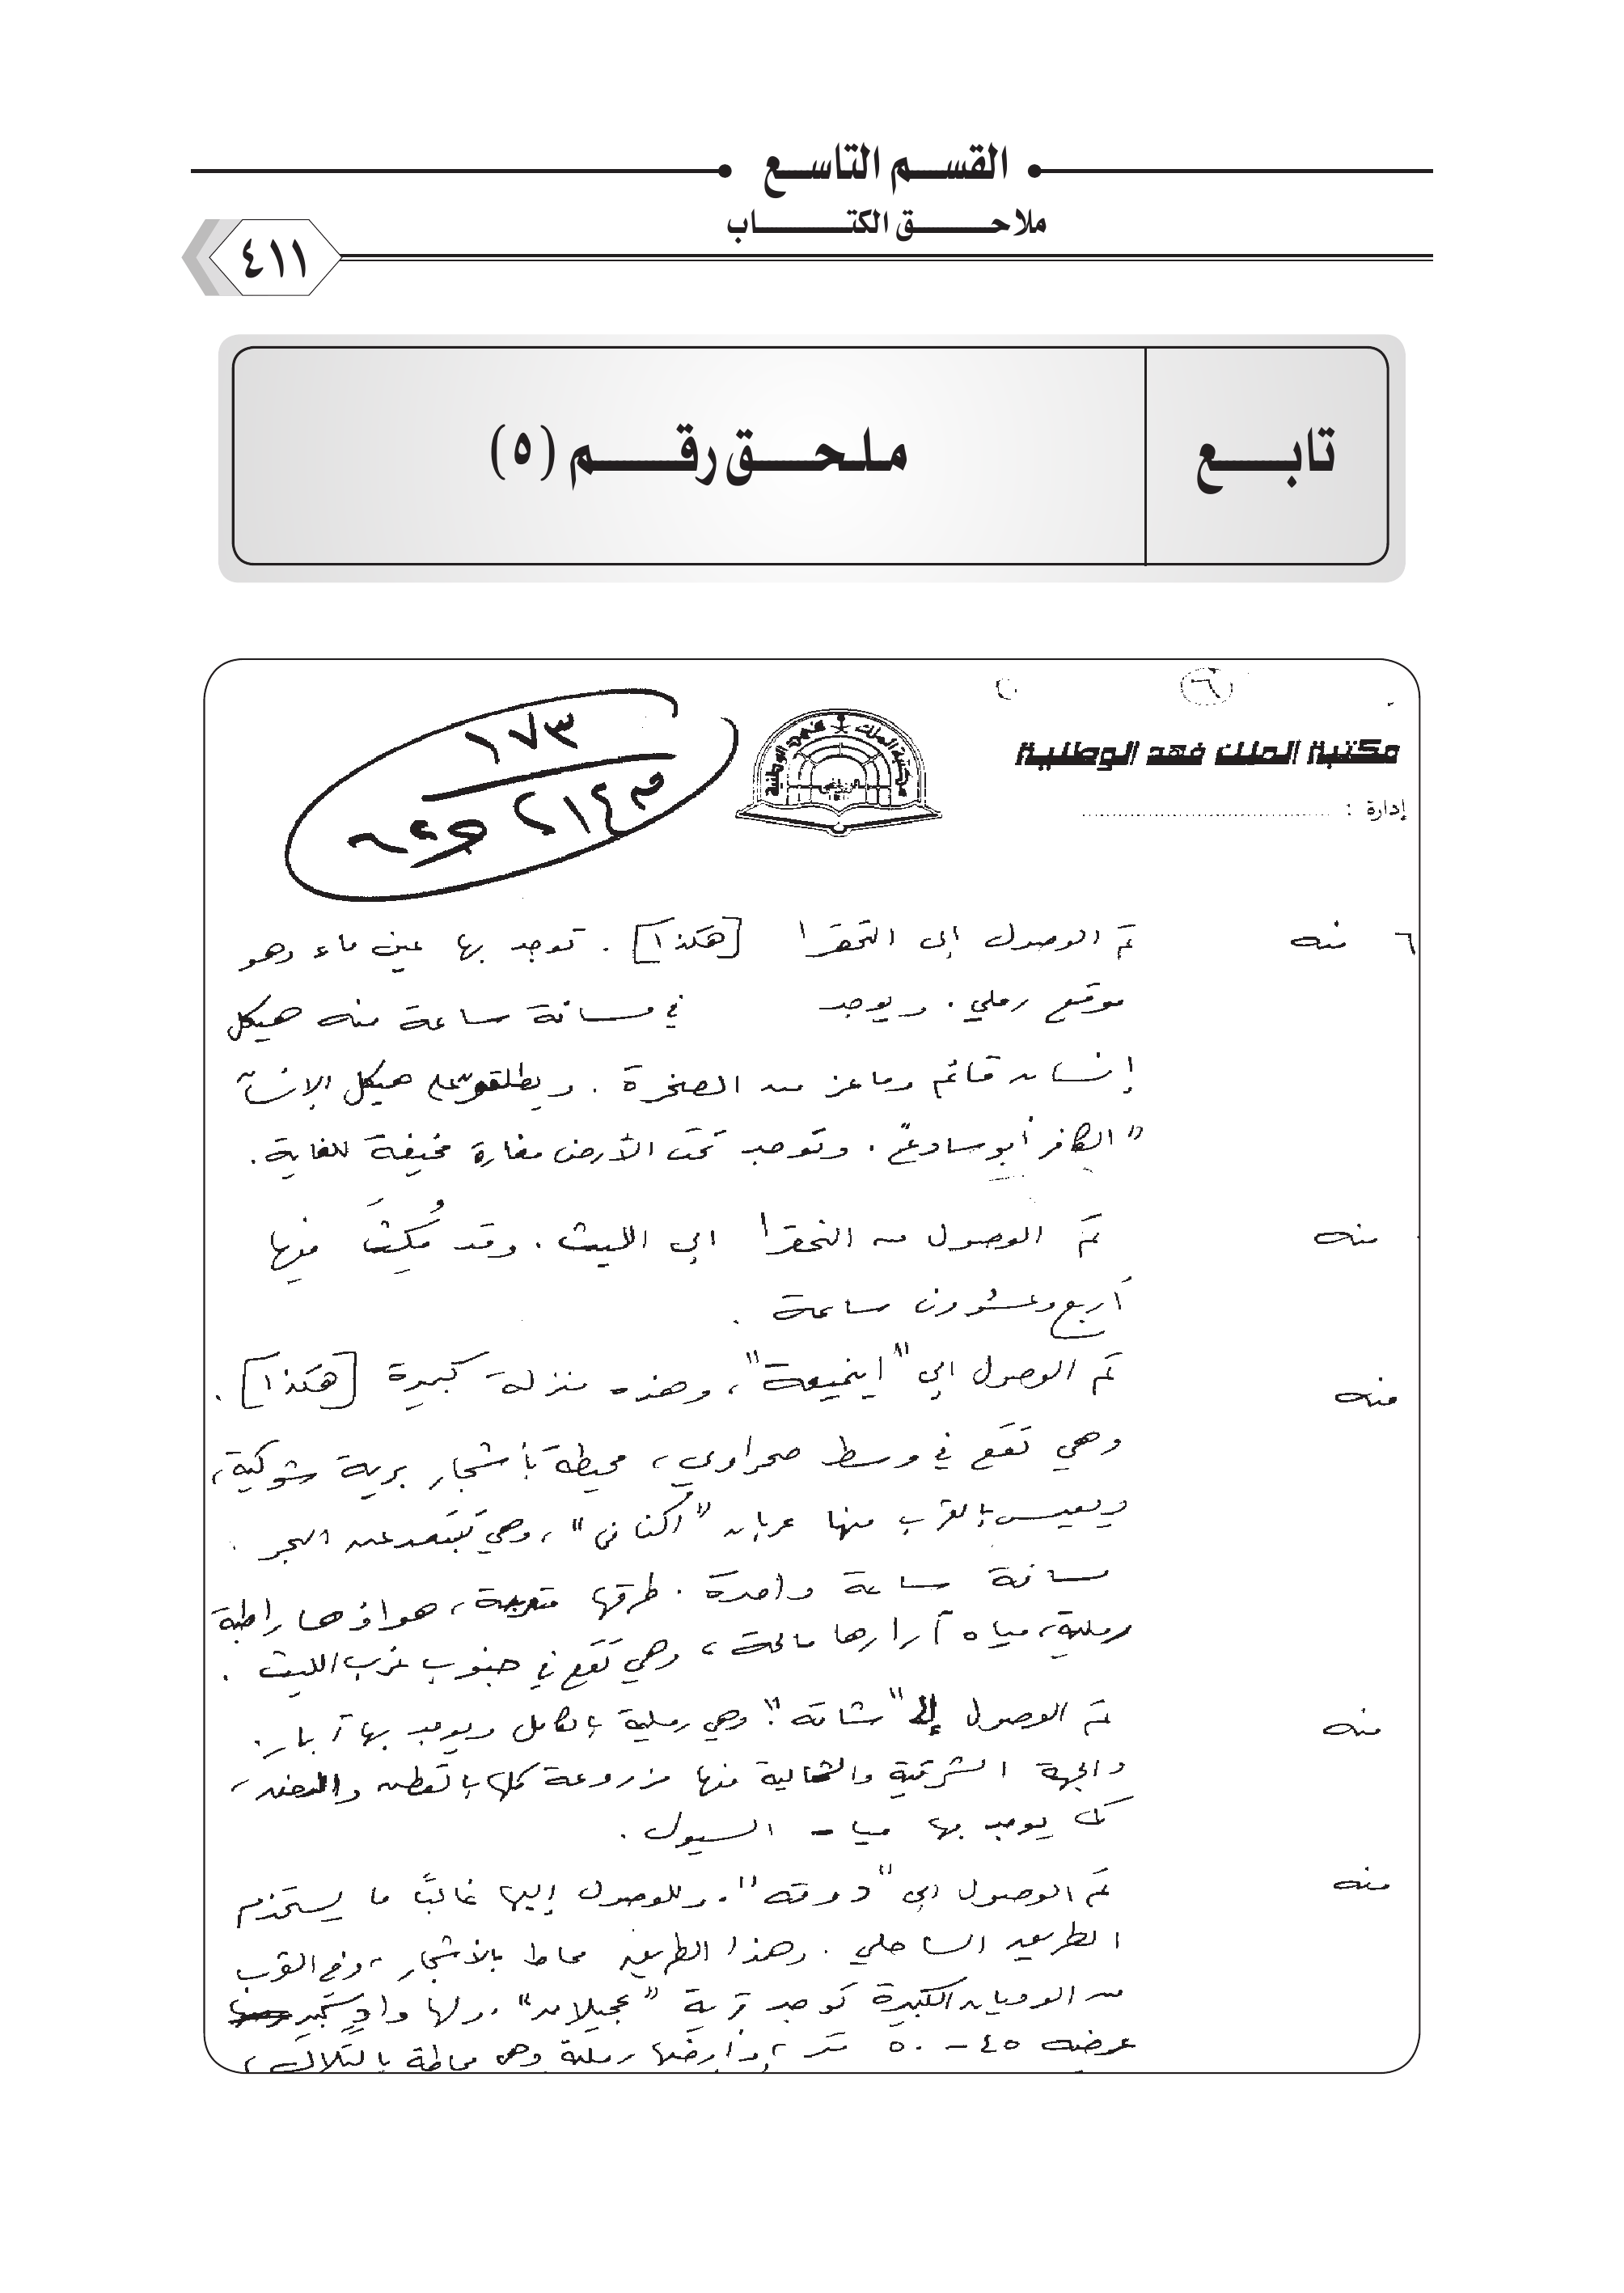 القسم التاسع
ملاحق الكتاب
٤١١
تابع
ملحق رقم (٥)
٦
مكتبة الملك فهد الوطنية
إدارة :
١٧٣
٦ منه
تم الوصول إلى الخضرا [هكذا] . توجد بها عين ماء وهو
موقع رملي . ويوجد في مسافة ساعة منه هيكل
إنسان قائم وماعز من الصخرة . ويطلقون على هيكل الإنسان
"الكافر أبو سادع" . وتوجد تحت الأرض مغارة مخيفة للغاية .
منه
تم الوصول من الخضرا الى الليث . وقد مُكِثَ فيها
أربع وعشرون ساعة .
منه
تم الوصول إلى ، وهذه منزلة كبيرة [هكذا] .
وهي تقع في وسط صحراوي ، محيطة بأشجار برية شوكية ،
ويعيش بالقرب منها عربان ، وهي تبتعد عن البحر .
مسافة ساعة واحدة . طرقها متعرجة ،
رملية ، مياه آرارها مالحة ، وهي تقع في جنوب غرب الليث .
منه
تم الوصول إلى "شاقه" . وهي رملية بالكامل ويوجد بها آبار .
والجهة الشرقية والشمالية منها مزروعة كلها بالقطن والدخن ،
كما يوجد بها مياه السيول .
منه
تم الوصول إلى "دوقه" . وللوصول إليها غالبًا ما يستخدم
الطريق الساحلي . وهذا الطريق محاط بالأشجار ، وفي القرب
من الوديان الكبيرة توجد قرية . ولها وادٍ كبير
عرضه ٤٥ - ٥٠ متر ، وأرضها رملية وهي محاطة بالتلال ،